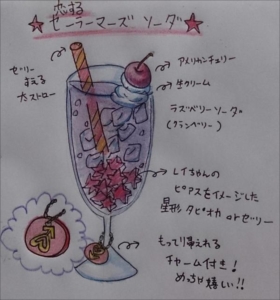 恋する
セーラーマーズ ソーダ
ゼリー
すえる
太ストロー
アメリカンチェリー
生クリーム
ラズベリーソーダ
(クランベリー)
レイちゃんの
ピアスをイメージした
星形タピオカ orゼリー
もって帰えれる
チャーム付き!
めっちゃ嬉しい!!